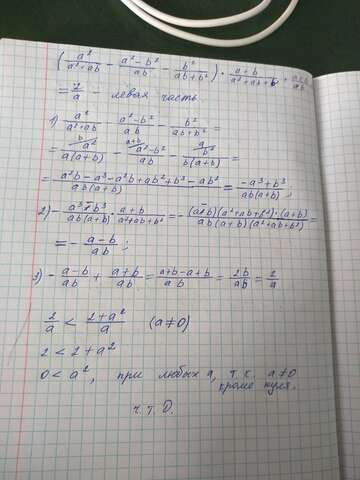 (a²/(a²+ab) - (a²-b²)/ab - b²/(ab+b²)) · (a+b)/(a²+ab+b²) + (a+b)/ab
= 2/a - левая часть.
1) a²/(a²+ab) - (a²-b²)/ab - b²/(ab+b²) =
= a²/a(a+b) - (a²-b²)/ab - b²/b(a+b) =
= (a²b-a³-a²b+ab²+b³-ab²)/ab(a+b) = (-a³+b³)/ab(a+b) ;
2) - (a³-b³)/ab(a+b) · (a+b)/(a²+ab+b²) = - (a-b)(a²+ab+b²)·(a+b)/ab(a+b)(a²+ab+b²) =
= - (a-b)/ab ;
3) - (a-b)/ab + (a+b)/ab = (a+b-a+b)/ab = 2b/ab = 2/a
2/a < (2+a²)/a (a≠0)
2 < 2+a²
0 < a², при любых a, т.к. a≠0
кроме нуля.
ч.т.д.